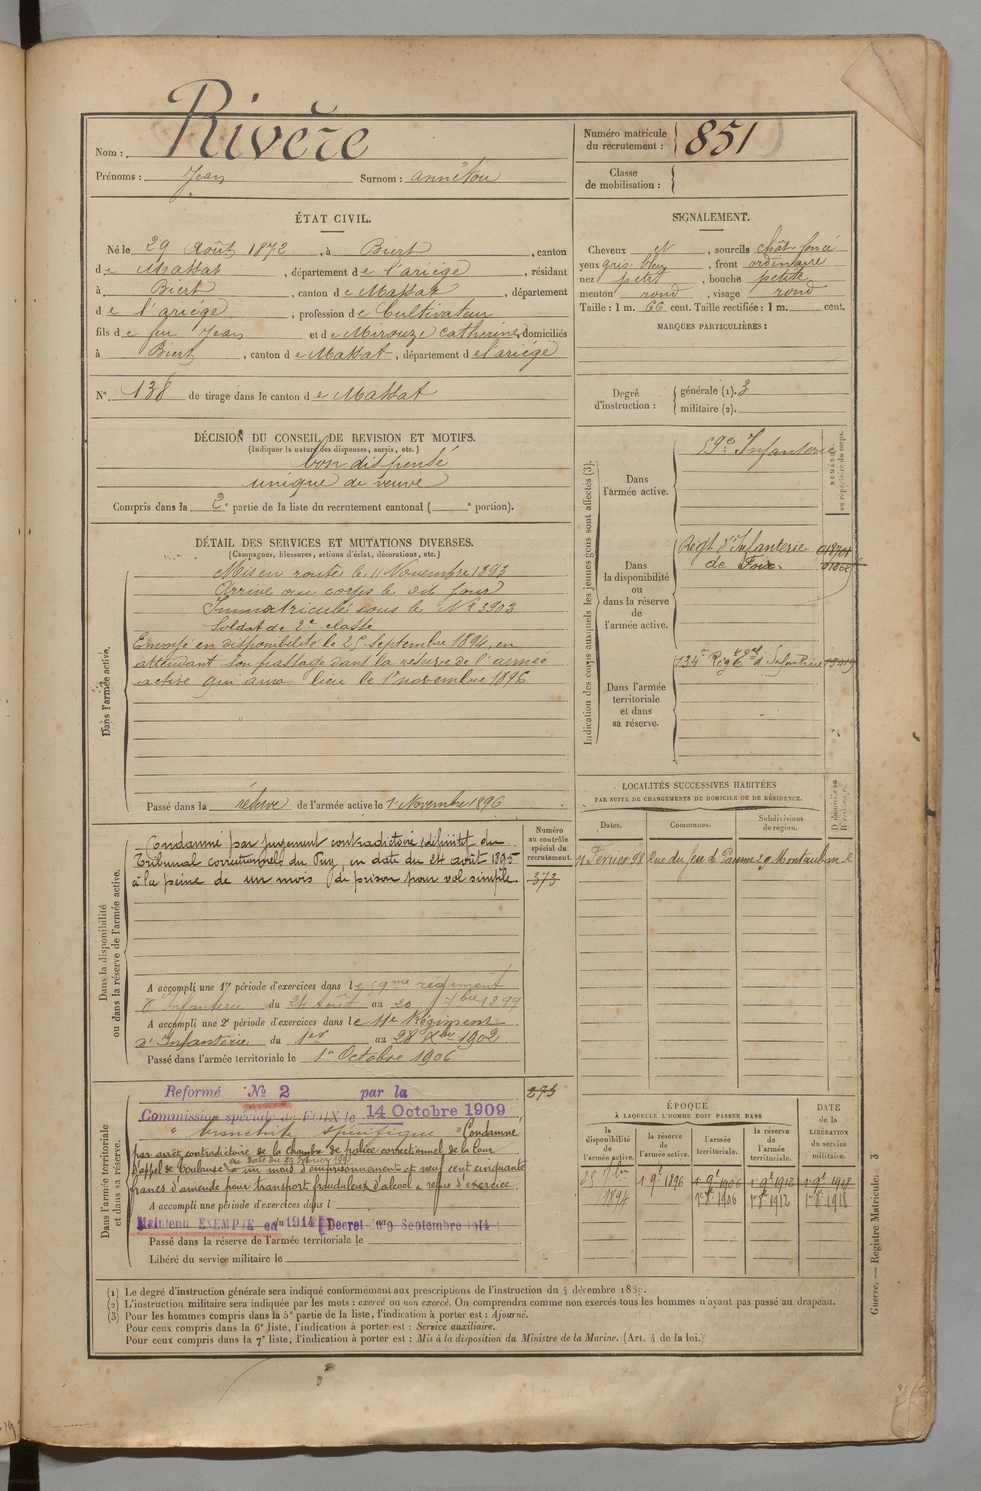 Nom : Rivère
Prénoms : Jean Surnom : annétou
Numéro matricule du recrutement : 851
Classe de mobilisation :
ÉTAT CIVIL.
Né le 29 Août 1872, à Biert, canton
de Massat, département de l'ariége, résidant
à Biert, canton de Massat, département
de l'ariége, profession de Cultivateur
fils de feu Jean et de Mirouze Catherine, domiciliés
à Biert, canton de Massat, département de l'ariége
N° 138 de tirage dans le canton de Massat
SIGNALEMENT.
Cheveux et, sourcils chât-foncé
yeux gris-bleu, front ordinaire
nez petit, bouche petite
menton rond, visage rond
Taille : 1 m. 66 cent. Taille rectifiée : 1 m. cent.
MARQUES PARTICULIÈRES :
Degré d'instruction : générale (1). 3
militaire (2).
DÉCISION DU CONSEIL DE REVISION ET MOTIFS.
(Indiquer la nature des dispenses, sursis, etc.)
bon dispensé
unique de veuve
Compris dans la 2e partie de la liste du recrutement cantonal ( e portion).
DÉTAIL DES SERVICES ET MUTATIONS DIVERSES.
(Campagnes, blessures, actions d'éclat, décorations, etc.)
Dans l'armée active.
Mis en route le 11 Novembre 1893
Arrivé au corps le dit jour
Immatriculé sous le N° 3903
Soldat de 2e classe
Envoyé en disponibilité le 25 Septembre 1894, en
attendant son passage dans la réserve de l'armée
active qui aura lieu le 1er novembre 1896
Passé dans la réserve de l'armée active le 1er Novembre 1896
Indication des corps auxquels les jeunes gens sont affectés (3).
NUMÉROS au répertoire du corps.
Dans l'armée active.
59e Infanterie
Dans la disponibilité ou dans la réserve de l'armée active.
Régt d'Infanterie
de Foix.
Dans l'armée territoriale et dans sa réserve.
134e Régt d'Infanterie
LOCALITÉS SUCCESSIVES HABITÉES
PAR SUITE DE CHANGEMENTS DE DOMICILE OU DE RÉSIDENCE.
Dates. Communes. Subdivisions de région. D. domicile ou R. résidence.
11 Février 98 Rue du jeu de Paume 29 Montauban R
Dans la disponibilité ou dans la réserve de l'armée active.
Numéro au contrôle spécial du recrutement.
373
Condamné par jugement contradictoire définitif du
Tribunal correctionnel du Puy, en date du 24 août 1895
à la peine de un mois de prison pour vol simple.
A accompli une 1re période d'exercices dans le 59me régiment
d'Infanterie du 24 Août au 20 7bre 1899
A accompli une 2e période d'exercices dans le 11e Régiment
d'Infanterie du 1er au 28 Xbre 1902
Passé dans l'armée territoriale le 1er Octobre 1906
Dans l'armée territoriale et dans sa réserve.
273
Reformé No 2 par la
Commission spéciale de FOIX le 14 Octobre 1909
" bronchite spécifique " Condamné
par arrêt contradictoire de la Chambre de police correctionnel de la Cour
en date du
d'appel de Toulouse à un mois d'emprisonnement et neuf cent cinquante
francs d'amende pour transport frauduleux d'alcool & refus d'exercice.
A accompli une période d'exercices dans l
Maintenu EXEMPTE en 1914 Decret du 9 Septembre 1914
Passé dans la réserve de l'armée territoriale le
Libéré du service militaire le
ÉPOQUE
À LAQUELLE L'HOMME DOIT PASSER DANS
DATE de la LIBÉRATION du service militaire.
la disponibilité de l'armée active. la réserve de l'armée active. l'armée territoriale. la réserve de l'armée territoriale.
25 7bre 1894 1 9bre 1896 1 9bre 1906 1 9bre 1912 1 9bre 1918
1er 8bre 1906 1er 8bre 1912 1er 8bre 1918
(1) Le degré d'instruction générale sera indiqué conformément aux prescriptions de l'instruction du 4 décembre 1889.
(2) L'instruction militaire sera indiquée par les mots : exercé ou non exercé. On comprendra comme non exercés tous les hommes n'ayant pas passé au drapeau.
(3) Pour les hommes compris dans la 5e partie de la liste, l'indication à porter est : Ajourné.
Pour ceux compris dans la 6e liste, l'indication à porter est : Service auxiliaire.
Pour ceux compris dans la 7e liste, l'indication à porter est : Mis à la disposition du Ministre de la Marine. (Art. 4 de la loi.)
Guerre. — Registre Matricule. 3